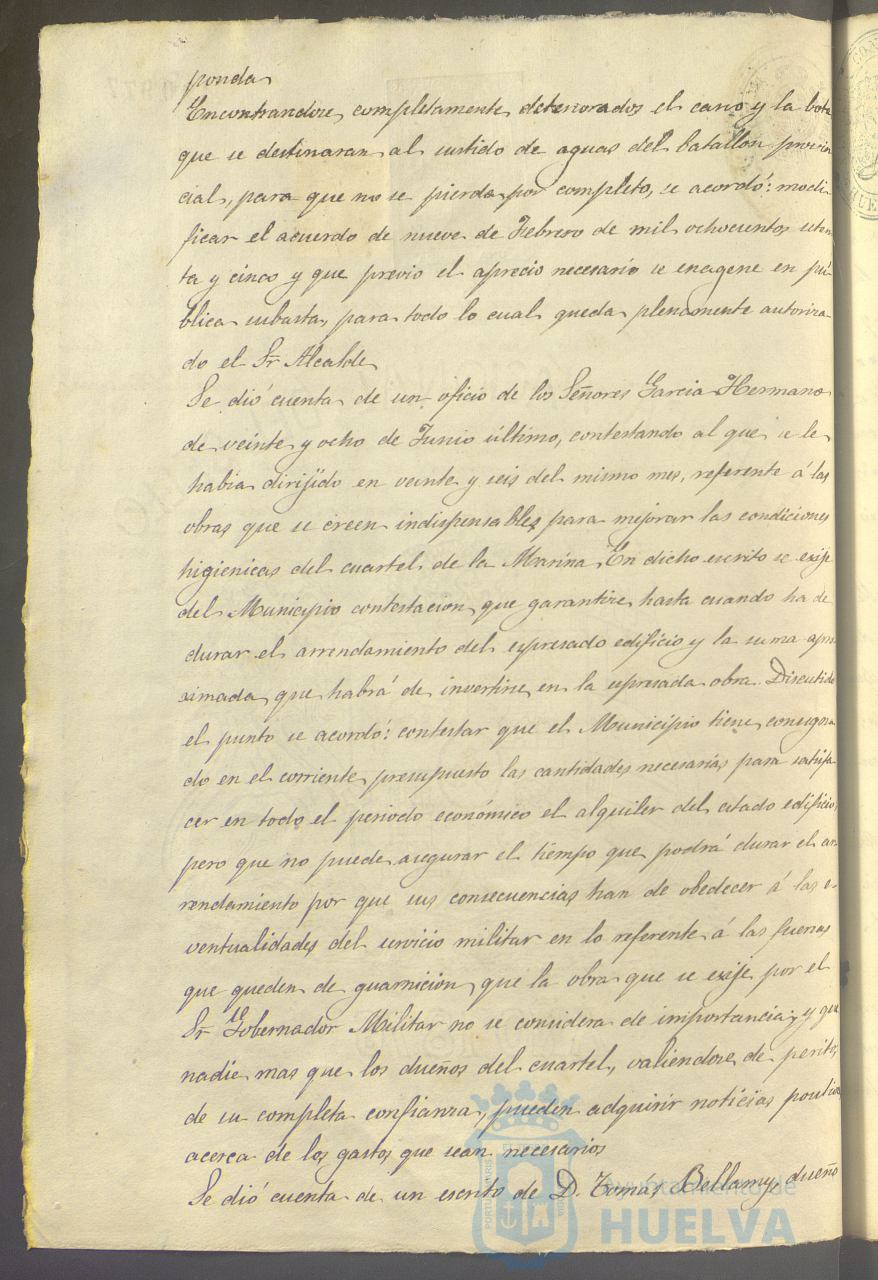 ponda
Encontrandose completamente deteriorados el carro y la bota
que se destinaran al surtido de aguas del batallon provin
cial, para que no se pierda por completo, se acordó: modi
ficar el acuerdo de nueve de Febrero de mil ochocientos seten
ta y cinco y que previo el aprecio necesario se enagene en pú
blica subasta, para todo lo cual queda plenamente autoriza
do el Sr Alcalde
Se dió cuenta de un oficio de los Señores Garcia Hermano
de veinte y ocho de Junio último, contestando al que se le
habia dirijido en veinte y seis del mismo mes, referente á las
obras que se creen indispensables para mejorar las condiciones
higienicas del cuartel de la Marina. En dicho escrito se exije
del Municipio contestacion que garantize hasta cuando ha de
durar el arrendamiento del espresado edificio y la suma apro
ximada que habrá de invertirse en la espresada obra. Discutido
el punto se acordó: contestar que el Municipio tiene consigna
do en el corriente presupuesto las cantidades necesarias para satisfa
cer en todo el periodo económico el alquiler del citado edificio,
pero que no puede asegurar el tiempo que podrá durar el ar
rendamiento por que sus consecuencias han de obedecer á las e-
ventualidades del servicio militar en lo referente á las fuerzas
que queden de guarnicion, que la obra que se exije por el
Sr Gobernador Militar no se considera de importancia; y que
nadie mas que los dueños del cuartel, valiendose de peritos
de su completa confianza, pueden adquirir noticias positivas
acerca de los gastos que sean necesarios
Se dió cuenta de un escrito de D. Tomás Bellamy, dueño
Ayuntamiento de
HUELVA